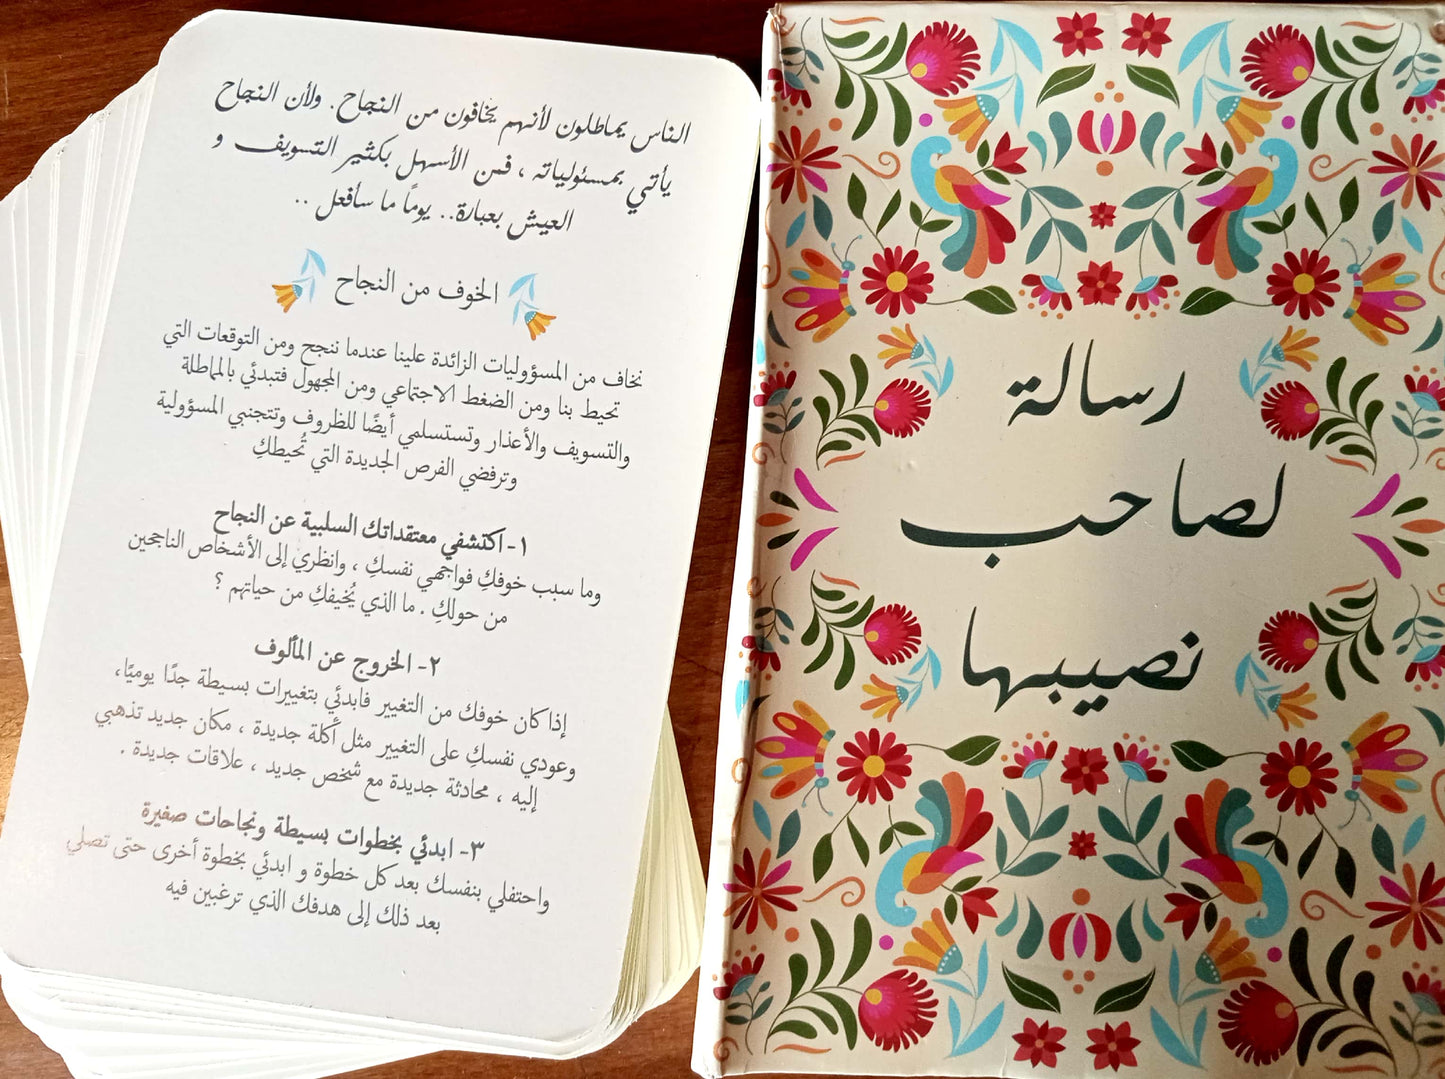 الناس يماطلون لأنهم يخافون من النجاح. ولأن النجاح
يأتي بمسئولياته ، فمن الأسهل بكثير التسويف و
العيش بعبارة.. يومًا ما سأفعل ..
الخوف من النجاح
نخاف من المسؤوليات الزائدة علينا عندما ننجح ومن التوقعات التي
تحيط بنا ومن الضغط الاجتماعي ومن المجهول فتبدئي بالمماطلة
والتسويف والأعذار وتستسلمي أيضًا للظروف وتتجنبي المسؤولية
وترفضي الفرص الجديدة التي تُحيطكِ
١- اكتشفي معتقداتك السلبية عن النجاح
وما سبب خوفكِ فواجهي نفسكِ ، وانظري إلى الأشخاص الناجحين
من حولكِ . ما الذي يُخيفكِ من حياتهم ؟
٢- الخروج عن المألوف
إذا كان خوفك من التغيير فابدئي بتغييرات بسيطة جدًا يوميًا،
وعودي نفسكِ على التغيير مثل أكلة جديدة ، مكان جديد تذهبي
إليه ، محادثة جديدة مع شخص جديد ، علاقات جديدة .
٣- ابدئي بخطوات بسيطة ونجاحات صغيرة
واحتفلي بنفسك بعد كل خطوة و ابدئي بخطوة أخرى حتى تصلي
بعد ذلك إلى هدفك الذي ترغبين فيه
رسالة
لصاحب
نصيبها